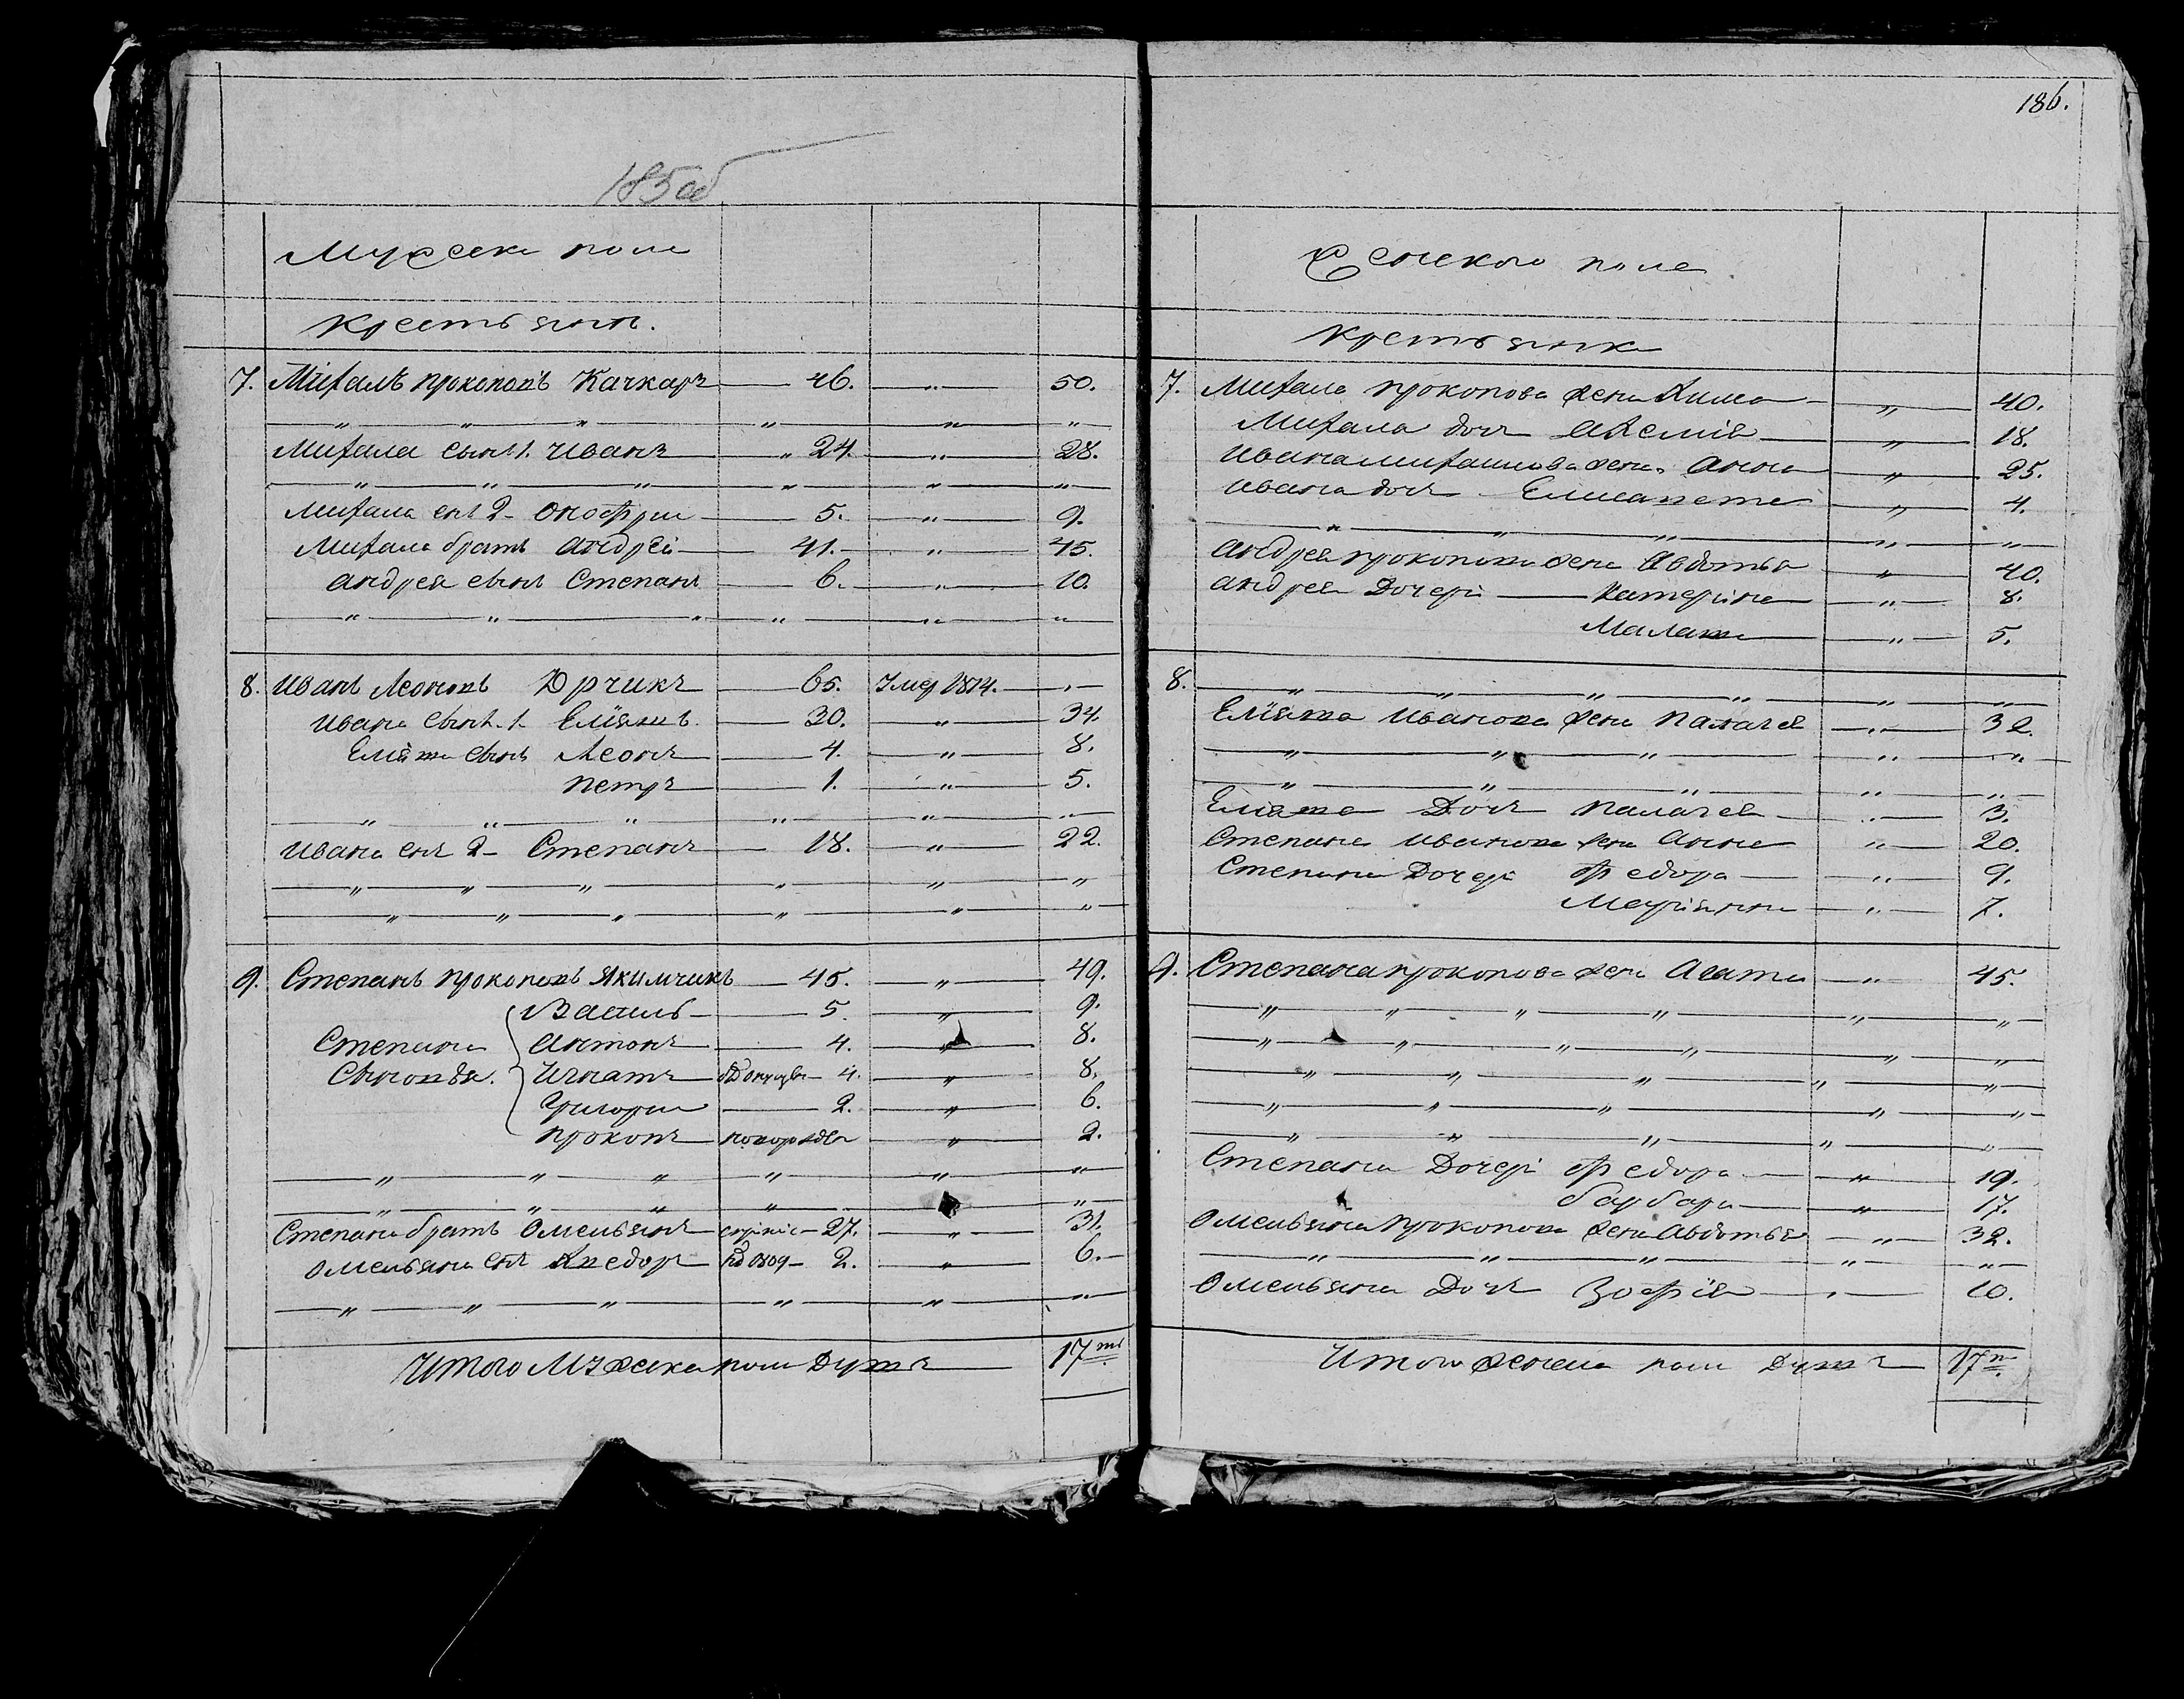 185об
Мужска пола
крестьянъ.
7. Михалъ прокоповъ Качкаръ — 46. — „ — 50.
„ „ „ „ „ „
Михала сынъ 1. Иванъ — „ 24. — „ — 28.
„ „ „ „ „ „
Михала снъ 2 - Онофри — 5. — „ — 9.
Михала братъ Андрей — 41. — „ — 45.
Андрея сынъ Степанъ — 6. — „ — 10.
„ „ „ „ „ „
8. Иванъ Леоновъ Юрчикъ — 65. Умер 1814. — „ —
Ивана сынъ. 1. Елїяшъ. — 30. — „ — 34.
Елїяша сынъ Леонъ — 4. — „ — 8.
петръ — 1. — „ — 5.
„ „ „ „ „ „
Ивана снъ 2 - Степанъ — 18. — „ — 22.
„ „ „ „ „ „
„ „ „ „ „ „
9. Степанъ прокоповъ Якимчикъ — 45. — „ — 49.
Василь — 5. — „ — 9.
Степана Антонъ — 4. — „ — 8.
Сыновья. Игнатъ — 4. — „ — 8.
Григори — 2. — „ — 6.
прокопъ — „ — 2.
„ „ „ „ „ „
„ „ „ „ „ „
Степана братъ Омельянъ — 27. — „ — 31.
Омельяна снъ — 2. — „ — 6. —
„ „ „ „ „ „
Итого Мужска пола Душъ — 17
186.
Женского пола
крестьянки
7. Михала прокопова жена — „ — 40.
Михала дочъ — „ — 18.
Ивана Михашова жена Анна — „ — 25.
Ивана дочъ Елисавета — „ — 4.
„ „ „ „ „
Андрея прокопова жена Авдотья — „ — 40.
Андрея Дочери — Катерина — „ — 8.
Малаша — „ — 5.
8. „ „ „ „ „ „
Елїяша Иванова жена палагея — „ — 32.
„ „ „ „ „
„ „ „ „ „
Елияша Дочъ палагея — „ — 3.
Степана Иванова жена Анна — „ — 20.
Степана Дочери Федора — „ — 9.
Марїянна — „ — 7.
9. Степана прокопова жена Агата — „ — 45.
„ „ „ „ „ „
„ „ „ „ „ „
„ „ „ „ „
„ „ „ „ „
„ „ „ „ „
Степана Дочери Федора — „ — 19.
барбара — „ — 17.
Омельяна прокопова жена Авдотья — „ — 32.
„ „ „ „ „
Омельяна Дочъ Зофїя — „ — 10.
Итого женска пола Душъ — 17